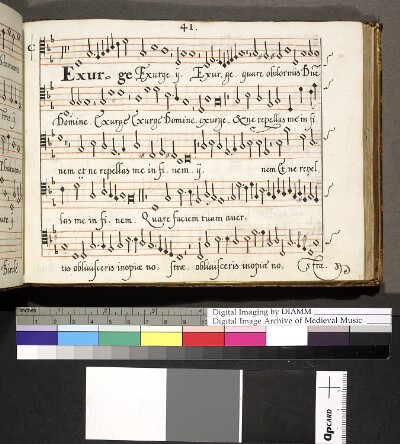 41.
Exur- ge Exurge ij. Exur. ge quare obdormis Dñe
Domine Exurge Exurge Domine exurge & ne repellas me in fi
nem et ne repellas me in fi. nem ij. nem Et ne repel.
las me in fi. nem. Quare faciem tuam auer.
tis obliuisceris inopiæ no. stræ. obliuisceris inopiæ no. stræ.
inches
Digital Imaging by DIAMM
Digital Image Archive of Medieval Music
QPCARD